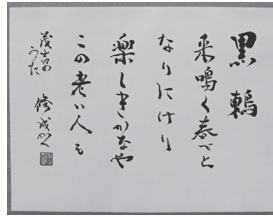 黒鶫
来鳴く春べと
なりにけり
楽しきかなや
この老い人も
茂吉の
うた